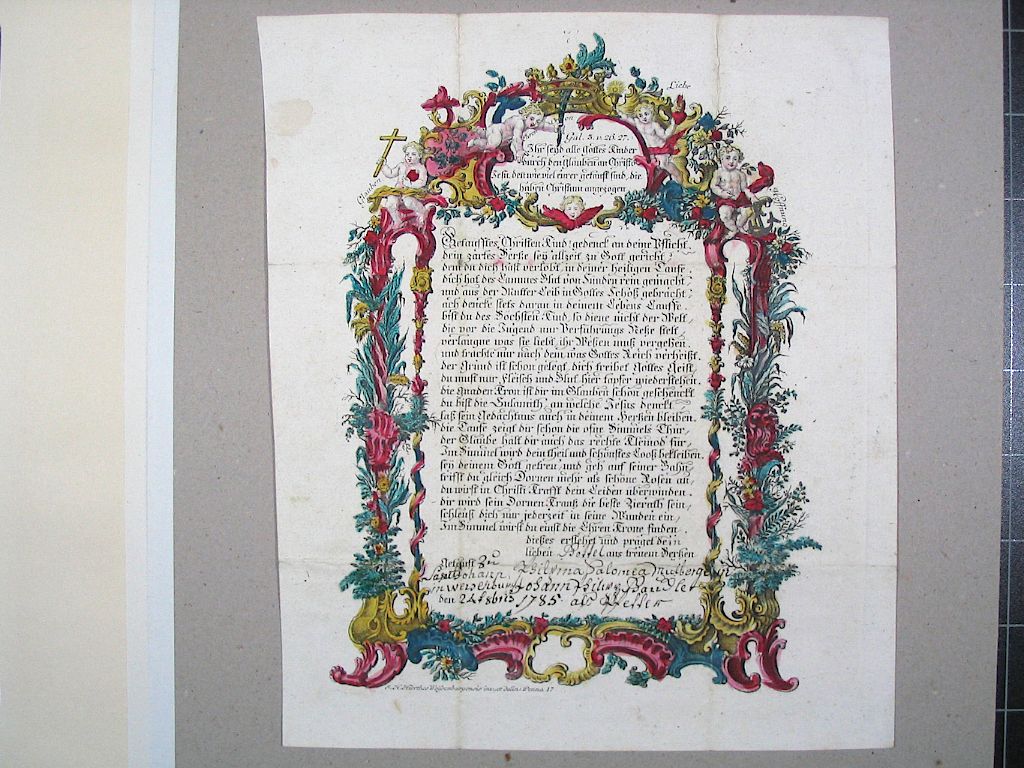 Liebe
Glauben
Hoffnung
Gal. 3. v. 26. 27.
Ihr seyd alle Gottes Kinder
durch den Glauben an Christo
Jesu, den wie viel eurer getauft sind, die
haben Christum angezogen.
Getaufftes Christen Kind! gedenck an deine Pflicht,
dein zartes Hertze sey allzeit zu Gott gericht,
dem du dich hast verlobt in deiner heiligen Tauffe,
dich hat des Lammes Blut von Sünden rein gemacht,
und aus der Mutter Leib in Gottes Schoß gebracht,
ach dencke stets daran in deinem Lebens Lauffe.
bist du des Höchsten Kind, so diene nicht der Welt,
die vor die Jugend nur Verführungs Netze stelt,
verlaugne was sie liebt, ihr Wesen muß vergehen,
und trachte nur nach dem was Gottes Reich verheißt,
der Grund ist schon gelegt, dich treibet Gottes Geist,
du must nur Fleisch und Blut hier tapfer wiederstehen,
die Gnaden Kron ist dir im Glauben schon geschenckt
du bist die Sulamith, an welche Jesus denckt,
laß sein Gedächtnus auch in deinem Hertzen bleiben.
die Tauffe zeigt dir schon die ofne Himmels Thür,
der Glaube halt dir auch das rechte Kleinod für,
Im Himmel wird dein theil und schönstes Looß bekleiben.
sey deinem Gott getreu, und geh auf seiner Bahn,
trifst du gleich Dornen mehr als schöne Rosen an,
du wirst in Christi Krafft dein Leiden überwinden.
dir wird sein Dornen Krantz die beste Zierath sein,
schleuß dich nur jederzeit in seine Wunden ein,
Im Himmel wirst du einst die Ehren Krone finden.
dießes erflehet und präget dein
lieben Pettel aus treuem Hertzen
Getauft zu
Sanct Johann Philipina Salomea
in Weissenburg Johann Philipp
den 24 8bris 1785 als Pfetter